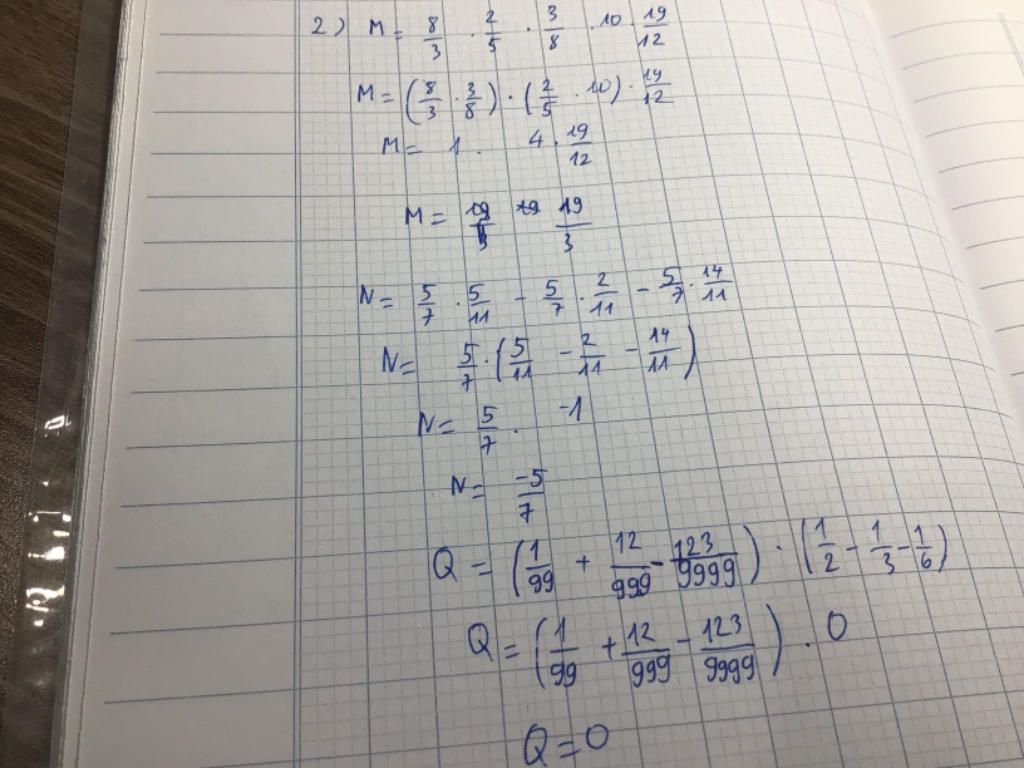 2) M = 8/3 · 2/5 · 3/8 · 10 · 19/12
M = (8/3 · 3/8) · (2/5 · 10) · 19/12
M = 1 · 4 · 19/12
M = 19/3
N = 5/7 · 5/11 - 5/7 · 2/11 - 5/7 · 14/11
N = 5/7 · (5/11 - 2/11 - 14/11)
N = 5/7 · -1
N = -5/7
Q = (1/99 + 12/999 - 123/9999) · (1/2 - 1/3 - 1/6)
Q = (1/99 + 12/999 - 123/9999) · 0
Q = 0